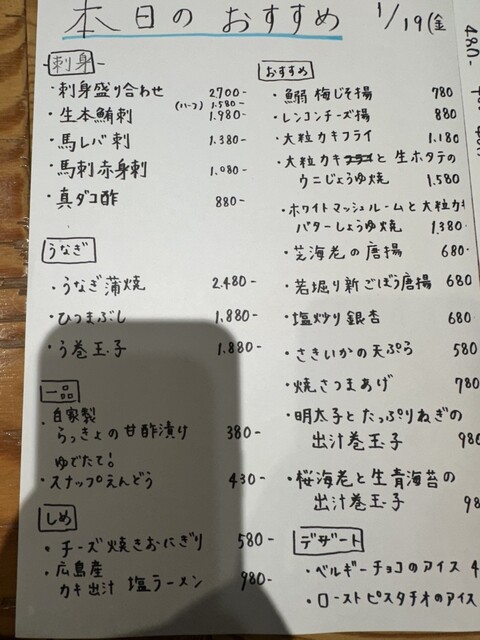 本日のおすすめ 1/19(金
刺身
・刺身盛り合わせ 2.700-
(ハーフ) 1.580-
・生本鮪刺 1.980-
・馬レバ刺 1.380-
・馬刺赤身刺 1.080-
・真ダコ酢 880-
うなぎ
・うなぎ蒲焼 2.480-
・ひつまぶし 1.880-
・う巻玉子 1.880-
一品
・自家製
らっきょの甘酢漬け 380-
ゆでたて!
・スナップえんどう 430-
しめ
・チーズ焼きおにぎり 580-
・広島産
カキ出汁 塩ラーメン 980-
おすすめ
・鰯梅じそ揚 780
・レンコンチーズ揚 880
・大粒カキフライ 1.180
・大粒カキと生ホタテの
ウニじょうゆ焼 1.580
・ホワイトマッシュルームと大粒カキ
バターしょうゆ焼 1.380-
・芝海老の唐揚 680-
・若堀り新ごぼう唐揚 680
・塩炒り銀杏 680
・さきいかの天ぷら 580
・焼さつまあげ 780
・明太子とたっぷりねぎの
出汁巻玉子 980
・桜海老と生青海苔の
出汁巻玉子 98
デザート
・ベルギーチョコのアイス 4
・ローストピスタチオのアイス
480-